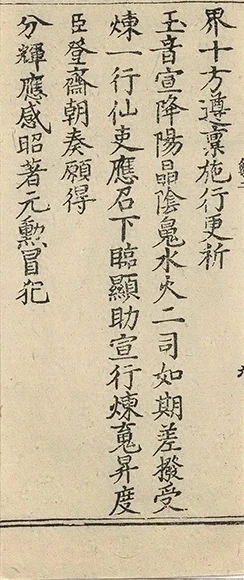 界十方遵稟施行更祈
玉音宣降陽晶陰鬼水火二司如期差撥受
煉一行仙吏應召下臨顯助宣行煉䰟昇度
臣登齋朝奏願得
分輝應感昭著元勲冒犯